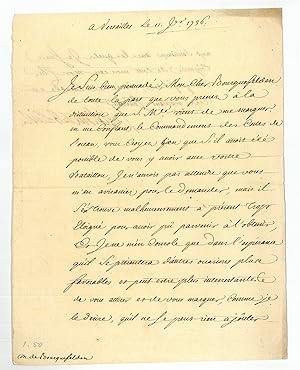 a Versailles Le 11. 1756.
Je suis bien persuadé, Mon Cher
de toute la part que vous prenez à la
distinction que S. M.té vient de me marquer
en me confiant le Commandement des Costes de
l'ocean, vous croyez bien que s'il avoit été
possible de vous y avoir avec votre
Bataillon, Je n'aurois pas attendu que vous
m'en avisassiez pour le demander, mais il
se trouve malheureusement à présent trop
Eloigné pour avoir pû parvenir à l'obtenir
Et Je ne m'en console que dans l'esperance
qu'il se présentera d'autres occasions plus
favorables et peut etre plus interessantes
de vous attirer et de vous marquer, comme je
le désire, qu'il ne se peut rien ajouter
1.50
M. de